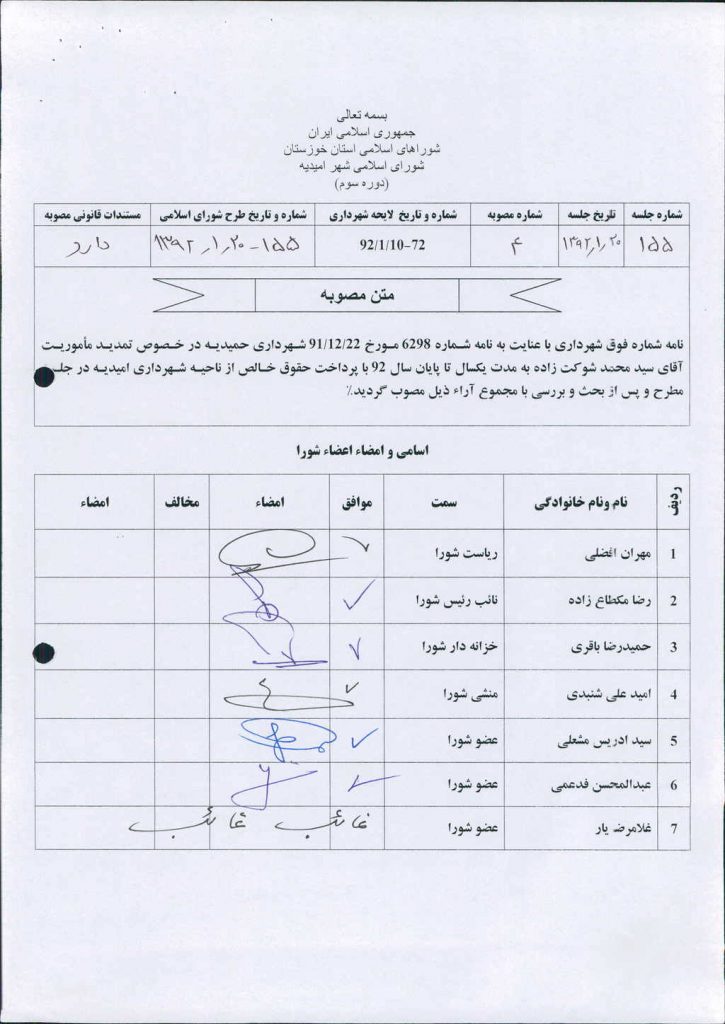 بسمه تعالی
جمهوری اسلامی ایران
شوراهای اسلامی استان خوزستان
شورای اسلامی شهر امیدیه
(دوره سوم)
شماره جلسه تاریخ جلسه شماره مصوبه شماره و تاریخ لایحه شهرداری شماره و تاریخ طرح شورای اسلامی مستندات قانونی مصوبه
۱۵۵ ۱۳۹۲٫۱٫۲۰ ۴ 92/1/10-72 ۱۵۵-۱۳۹۲٫۱٫۲۰ دارد
متن مصوبه
نامه شماره فوق شهرداری با عنایت به نامه شماره 6298 مورخ 91/12/22 شهرداری حمیدیه در خصوص تمدید مأموریت
آقای سید محمد شوکت زاده به مدت یکسال تا پایان سال 92 با پرداخت حقوق خالص از ناحیه شهرداری امیدیه در جلـ
مطرح و پس از بحث و بررسی با مجموع آراء ذیل مصوب گردید.٪
اسامی و امضاء اعضاء شورا
ردیف نام ونام خانوادگی سمت موافق امضاء مخالف امضاء
1 مهران افضلی ریاست شورا
2 رضا مکطاع زاده نائب رئیس شورا
3 حمیدرضا باقری خزانه دار شورا
4 امید علی شنبدی منشی شورا
5 سید ادریس مشعلی عضو شورا
6 عبدالمحسن فدعمی عضو شورا
7 غلامرضا یار عضو شورا غائب غائب